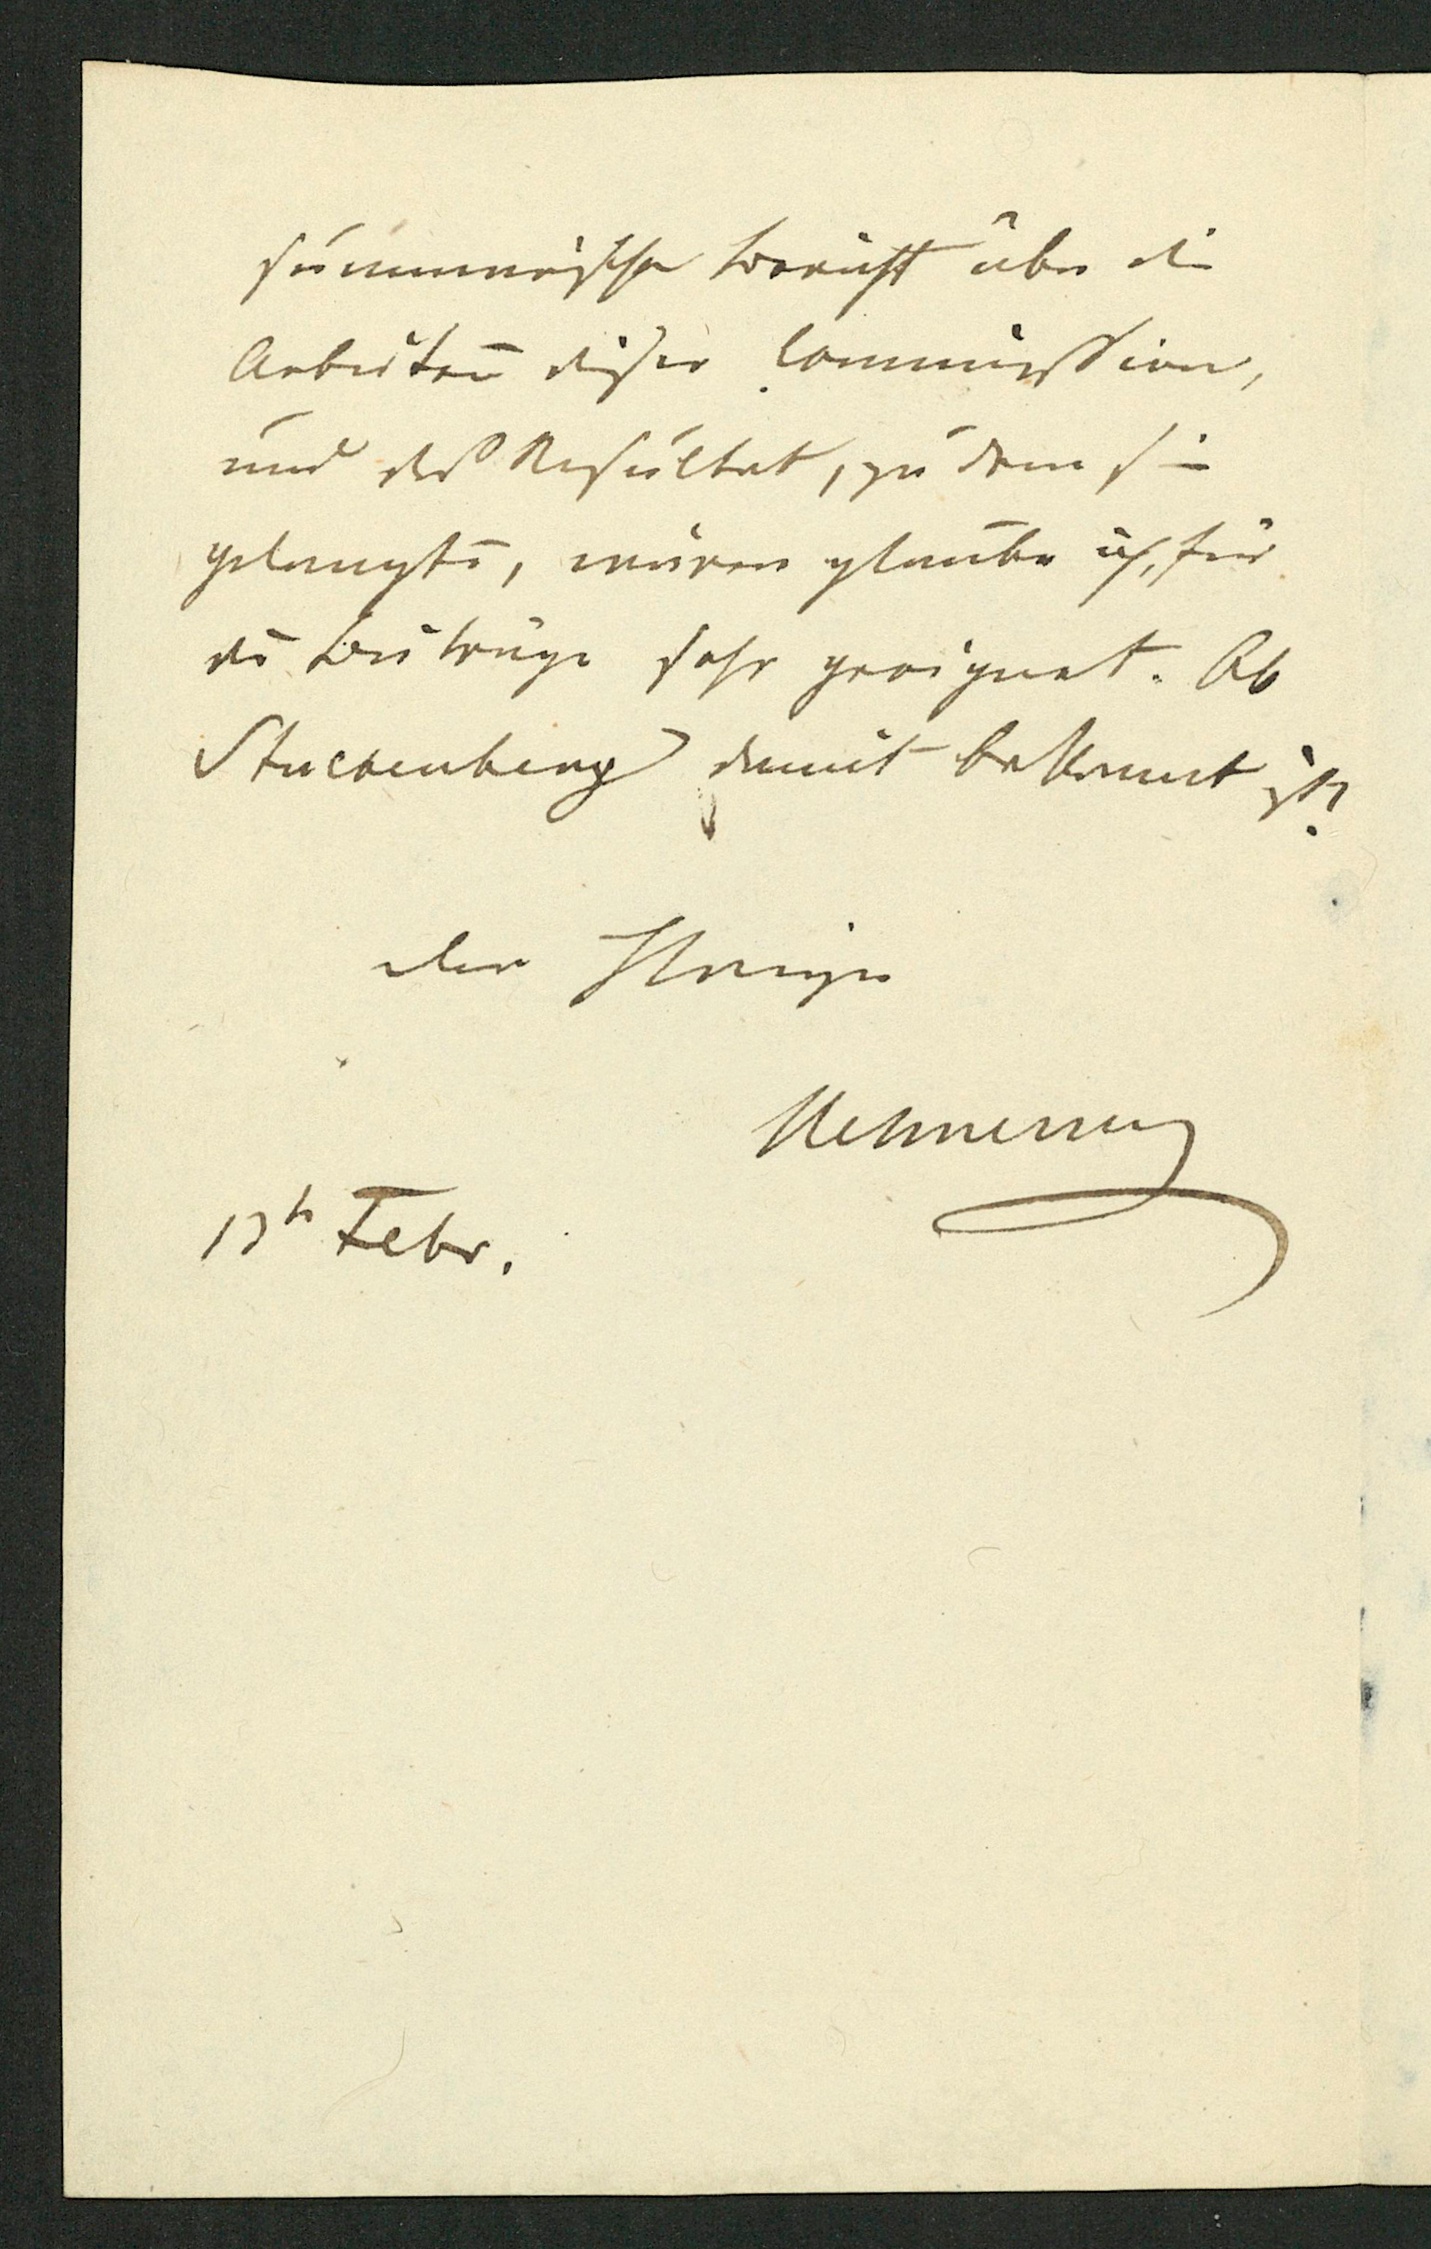 summarischer Bericht über die
Arbeiten dieser Commission,
und das Resultat, zu dem sie
gelangte, wären glaube ich, für
die Beiträge sehr geeignet. Ob
Stuckenberg damit bekannt ist?
der Ihrige
Helmersen
13t Febr.